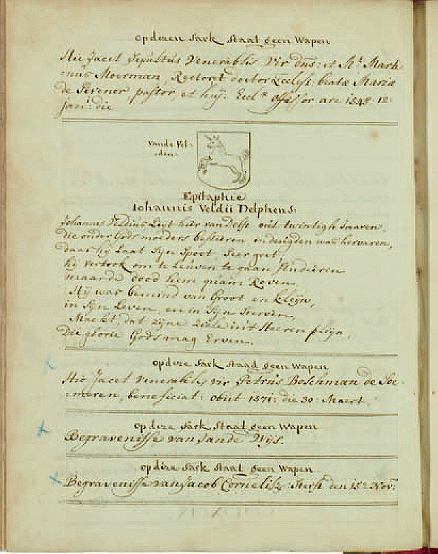 op dezen Sark Staat geen Wapen
Hic Jacet Sepultus Venerabilis Vir Dns: et Mr. Mart
inus Moerman, Rector et doctor Eccliæ beatæ Mariæ
de Sevener pastor, et huj: Eccl
jan: die
Vande Vel-
den.
Epitaphie
Iohannis Veldii Delphens:
Johannes Veldius Ligt hier van delft out twintigh Jaaren,
die onder Godt moeders besturen in deugden was hervaren,
daar hij Laat Sijn Spoet Seer gret,
hij vertrok om te Leuven te gaan Studeren
maar de dood hem quam Roven.
Hij was bemind van Groot en Kleijn,
in Sijn Leven, en in Sijn Sterven,
Maekt, dat zijne Ziele in't Heeren pleijn,
Die glorie Gods mag Erven.
op deze Sark Staad geen Wapen
Hic Jacet Venerabilis Vir Petrus Boschman de Soe-
meren, beneficiat: obiit 1571: die 30: Maert
op deze Sark Staat geen Wapen
Begravenisse van Sande Wijs.
op deze Sark Staat geen Wapen
Begravenisse van Jacob Cornelisz: Sterft den 15e Nov: